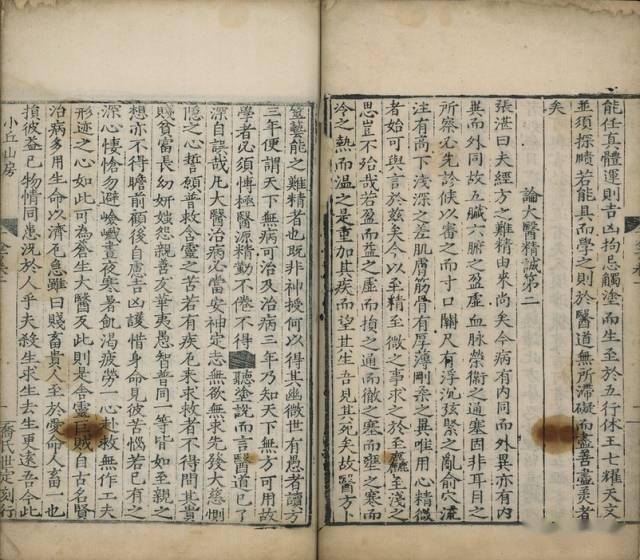 能任真體運則吉凶拘忌觸塗而生至於五行休王七耀天文
並須探賾若能具而學之則於醫道無所滯礙而盡善盡美者
矣
論大醫精誠第二
張湛曰夫經方之難精由來尚矣今病有內同而外異亦有內
異而外同故五臟六腑之盈虛血脉榮衞之通塞固非耳目之
所察必先診候以審之而寸口關尺有浮沉弦緊之亂俞穴流
注有高下淺深之差肌膚筋骨有厚薄剛柔之異唯用心精微
者始可與言於兹矣今以至精至微之事求之於至麄至淺之
思豈不殆哉若盈而益之虛而損之通而徹之塞而壅之寒而
冷之熱而溫之是重加其疾而望其生吾見其死矣故醫方卜
筮藝能之難精者也既非神授何以得其幽微世有愚者讀方
三年便謂天下無病可治及治病三年乃知天下無方可用故
學者必須慱極醫源精勤不倦不得聽塗說而言醫道已了
深自誤哉凡大醫治病必當安神定志無欲無求先發大慈惻
隱之心誓願普救含靈之苦若有疾厄來求救者不得問其貴
賤貧富長幼妍媸怨親善友華夷愚智普同一等皆如至親之
想亦不得瞻前顧後自慮吉凶護惜身命見彼苦惱若己有之
深心悽愴勿避嶮巇晝夜寒暑飢渴疲勞一心赴救無作工夫
形迹之心如此可為蒼生大醫反此則是含靈巨賊自古名賢
治病多用生命以濟危急雖曰賤畜貴人至於愛命人畜一也
損彼益己物情同患況於人乎夫殺生求生去生更遠吾今此
小丘山房
喬氏世定刻行